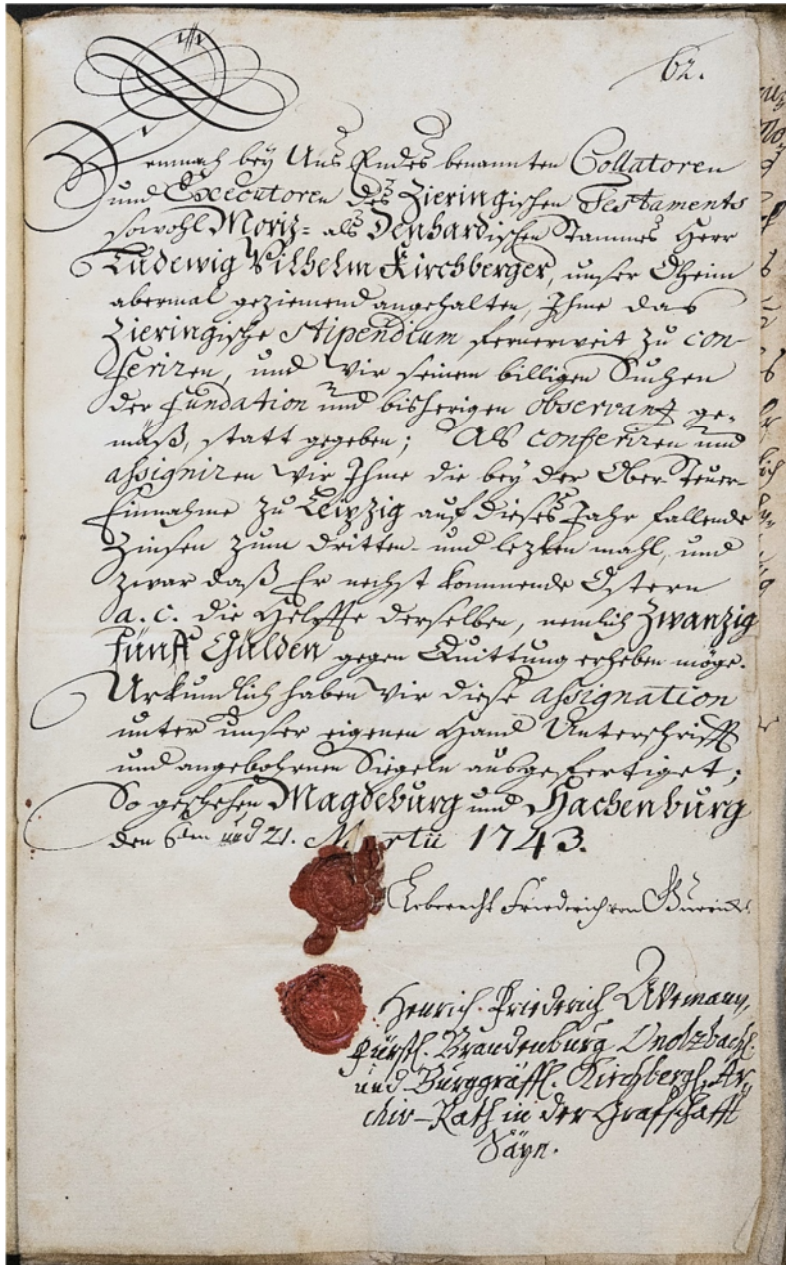 62.
Demnach bey Uns Endes benannten Collatoren
und Executoren des Zieringischen Testaments
sowohl Moriz- als Denhardischen Stammes Herr
Ludewig Wilhelm Kirchberger, unser Oheim
abermal geziemend angehalten, Ihme das
Zieringische Stipendium fernerweit zu con-
feriren, und Wir seinem billigen Suchen
der Fundation und bisherigen observantz ge-
mäß, statt gegeben; Als conferiren und
assigniren Wir Ihme die bey der Ober-Steuer-
Einnahme zu Leipzig auf dieses Jahr fallende
Zinsen zum dritten- und lezten mahl, und
zwar daß Er nechst kommende Ostern
a. c. die Helffte derselben, nemlich Zwanzig
fünff Gülden gegen Quittung erheben möge.
Urkundlich haben Wir diese assignation
unter unser eigenen Hand Unterschrifft
und angebohrnen Siegeln ausgefertiget;
So geschehen Magdeburg und Hachenburg
den und 21. Martii 1743.
Leberecht Friederich von Guericke
Henrich Friederich Avemann,
Fürstl. Brandenburg Onolzbachl.
und Burggräffl. Kirchbergl. Ar-
chiv-Rath in der Grafschafft
Säyn.